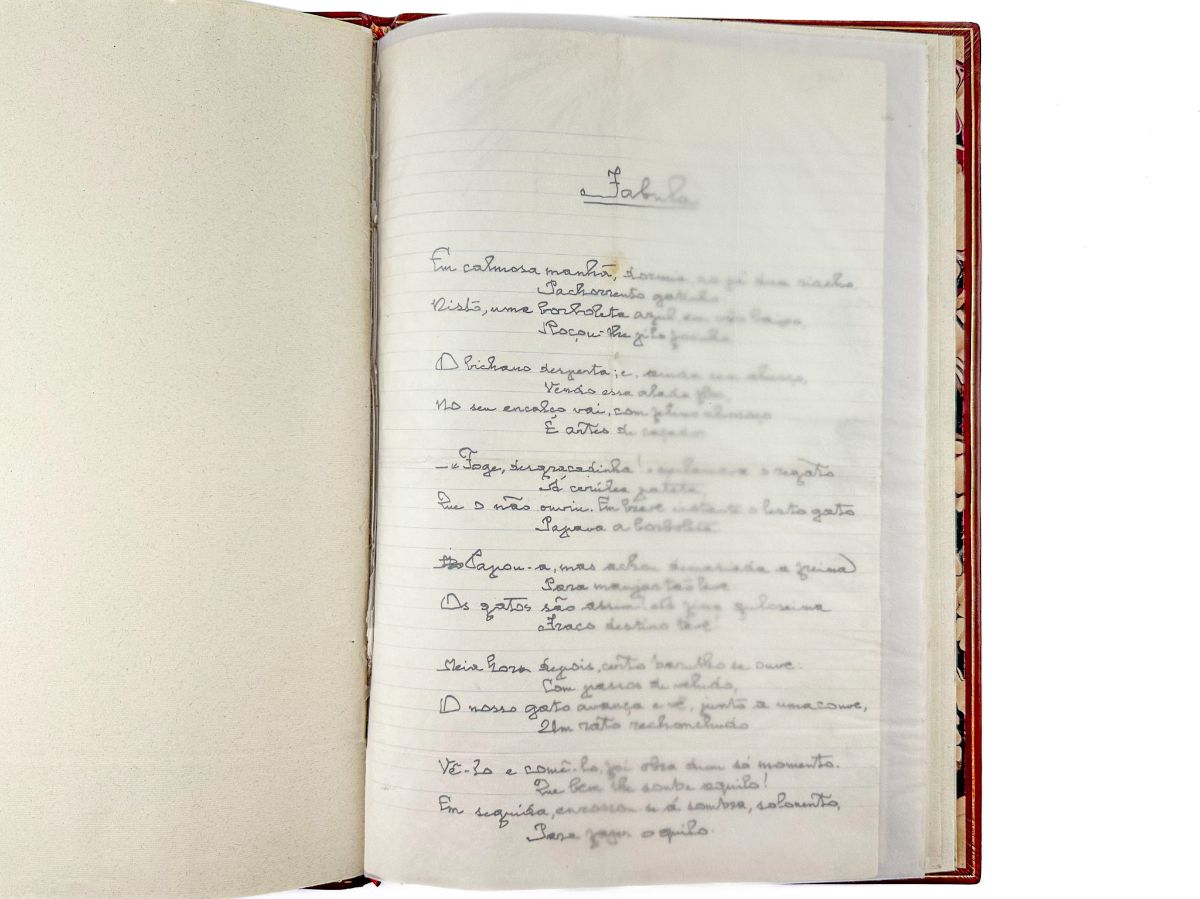 Fabula
Em calmosa manhã, dormia ao pé dum riacho
Pachorrento gatinho.
Nisto, uma borboleta azul em vôo baixo,
Roçou-lhe pelo focinho.
O bichano desperta; e, ainda sem
Vendo essa alada flor,
No seu encalço vai, com felino
É antes de caçador.
— «Foge, desgraçadinha! exclamava o regato
Á cerúlea
Que o não ouviu. Em breve instante, o lesto gato
Papava a borboleta.
Papou-a, mas achou demasiada a
Para manjar tão leve.
Os gatos são assim: fina guloseima
Fraco destino teve!
Meia hora depois, certo barulho se ouve.
Com passos de veludo,
O nosso gato avança e vê, junto a uma couve,
Um rato rechonchudo
Vê-lo e comê-lo, foi obra dum só momento.
Que bem lhe soube aquilo!
Em seguida, enroscou-se á sombra, solarento,
Para fazer o quilo.